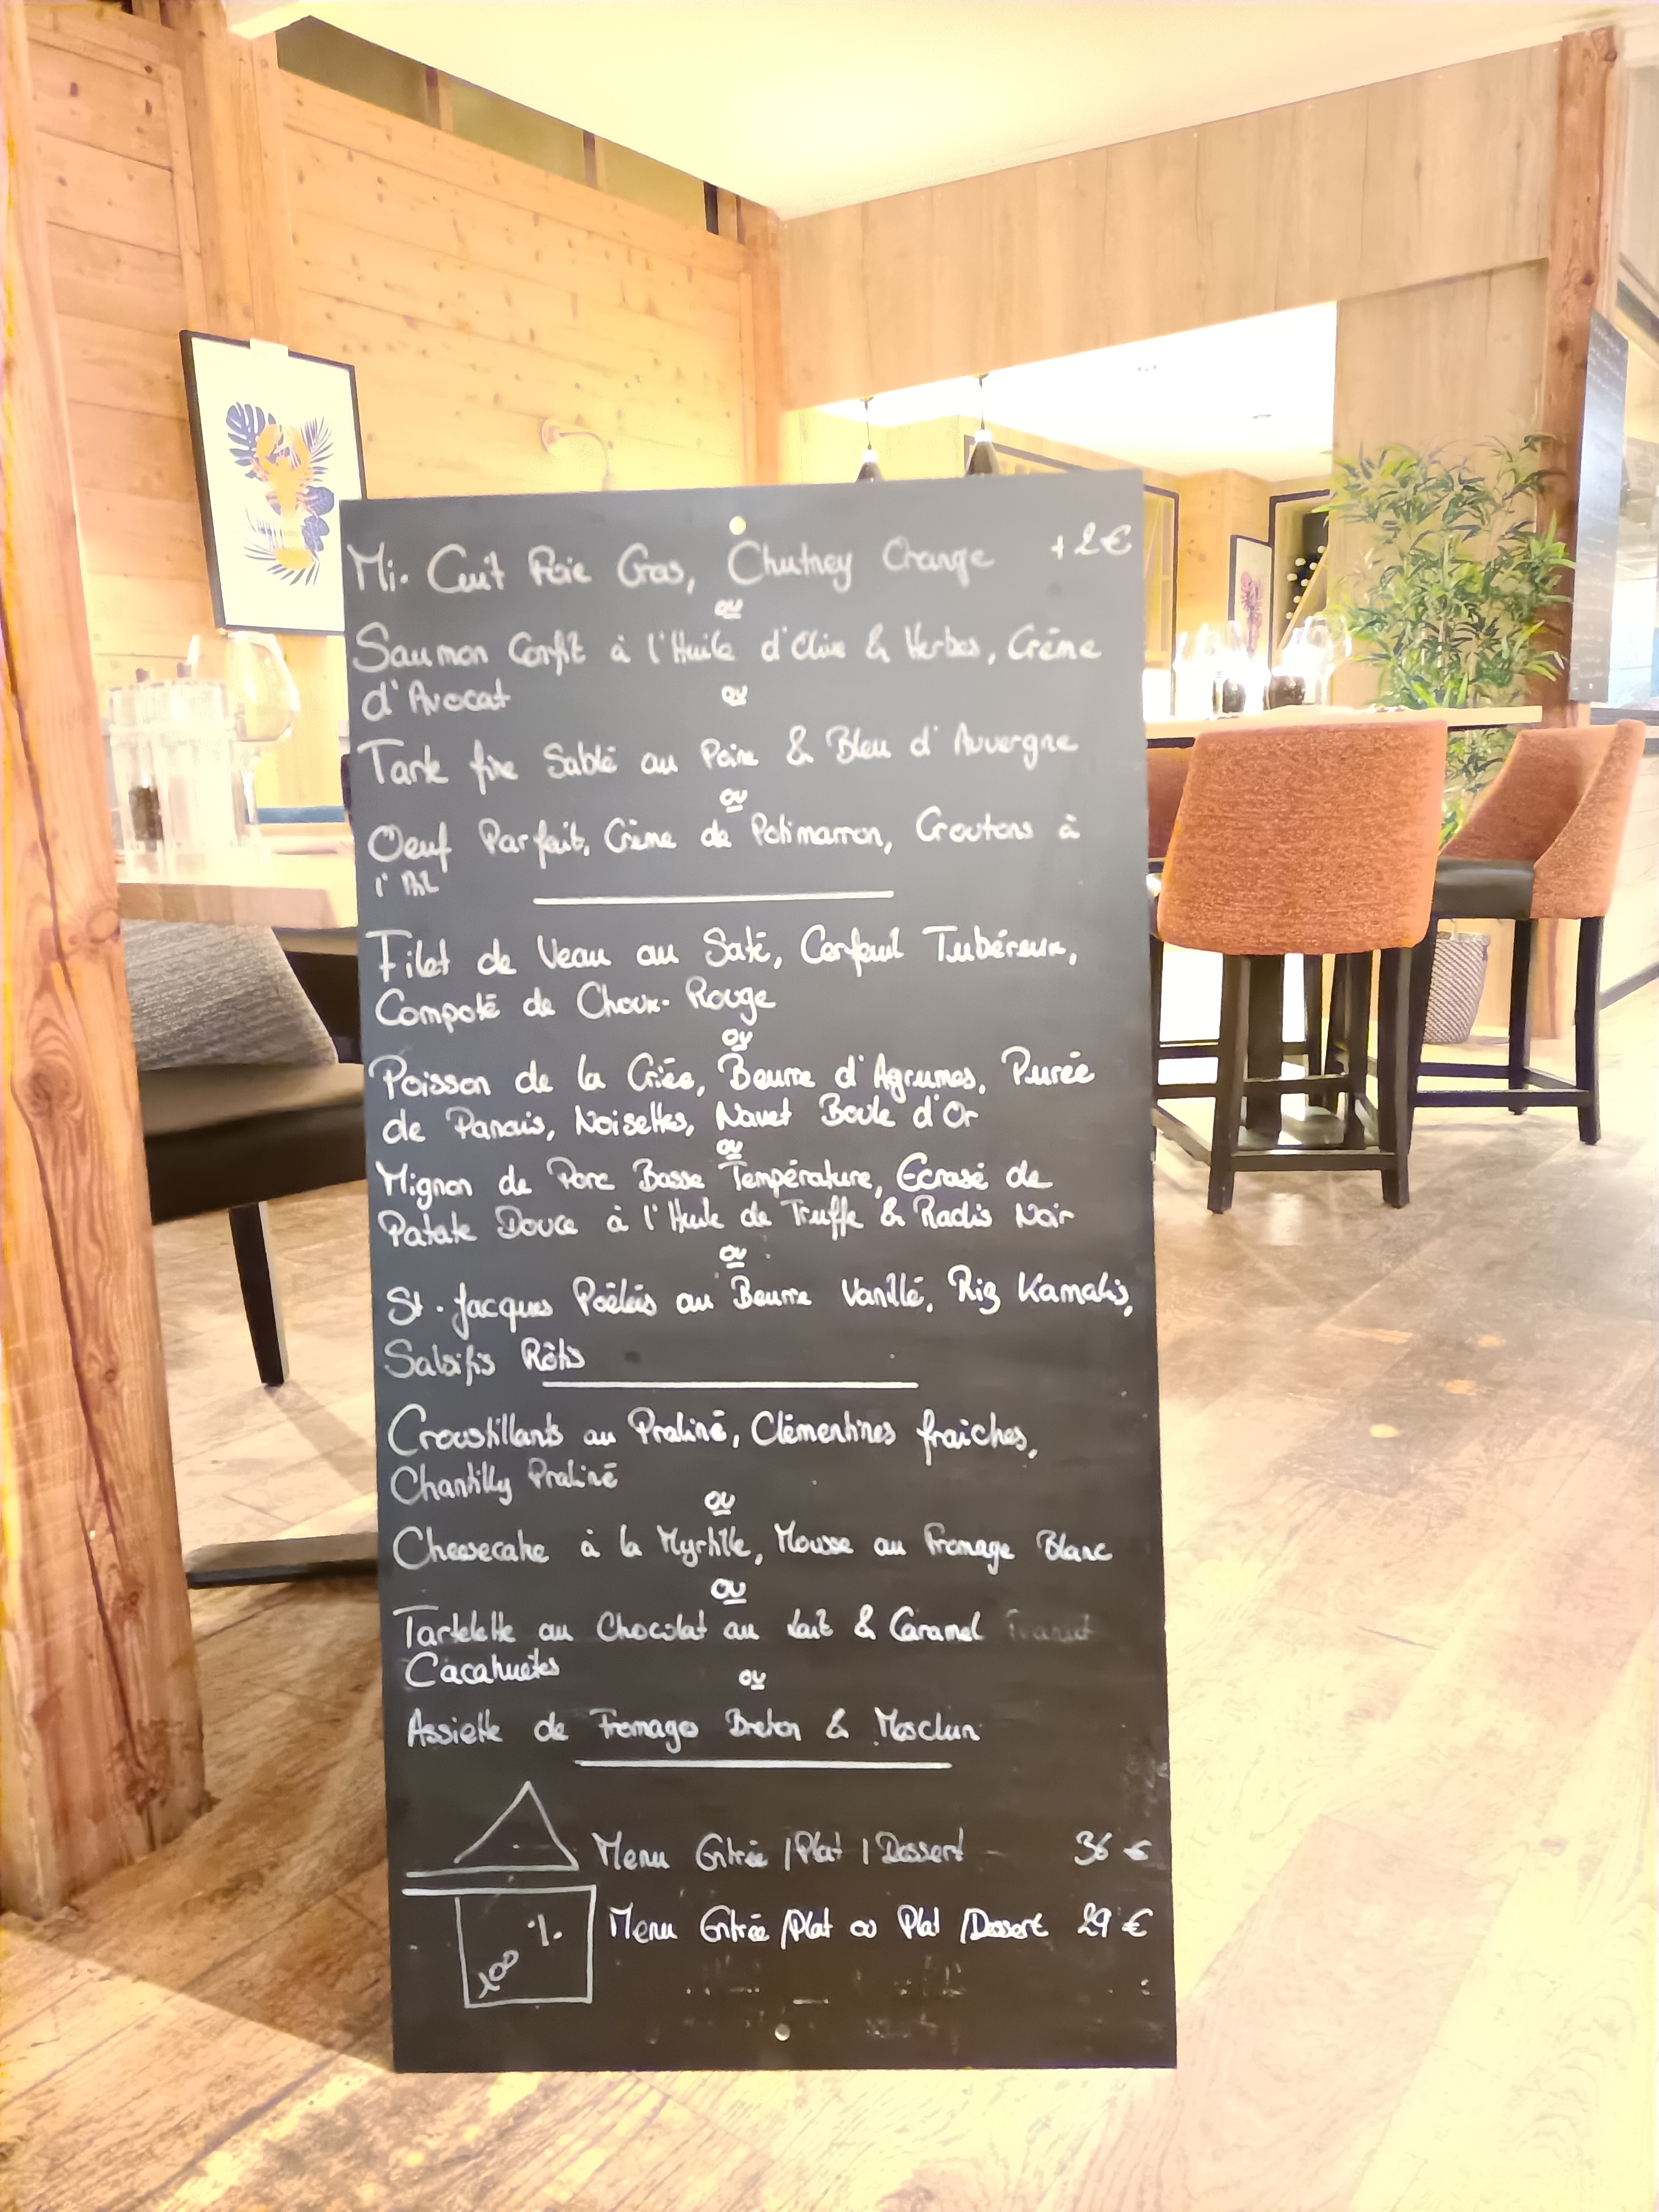 Mi-Cuit Foie Gras, Chutney Orange +2€
ou
Saumon Confit à l'Huile d'Olive & Herbes, Crème
d'Avocat
ou
Tarte fine Sablé au Poire & Bleu d'Auvergne
ou
Oeuf Parfait, Crème de Potimarron, Croutons à
l'Ail
Filet de Veau au Saté, Cerfeuil Tubéreux,
Compoté de Choux-Rouge
ou
Poisson de la Criée, Beurre d'Agrumes, Purée
de Panais, Noisettes, Navet Boule d'Or
ou
Mignon de Porc Basse Température, Ecrasé de
Patate Douce à l'Huile de Truffe & Radis Noir
ou
St-Jacques Poêlés au Beurre Vanillé, Riz Kamalis,
Salsifis Rôtis
Croustillants au Praliné, Clémentines fraiches,
Chantilly Praliné
ou
Cheesecake à la Myrtille, Mousse au Fromage Blanc
ou
Tartelette au Chocolat au Lait & Caramel
Cacahuètes
ou
Assiette de Fromages Breton & Mesclun
Menu Entrée / Plat / Dessert 36 €
Menu Entrée / Plat ou Plat / Dessert 29 €
100 %